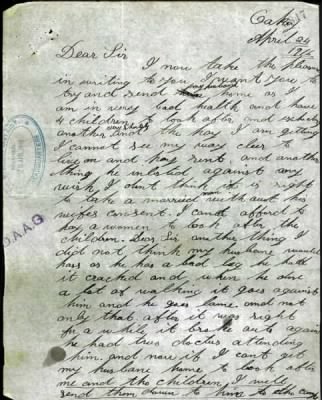 April 24
Dear Sir
I now take the pleasure
in writing to you. I want you to
try and send my husband home as I
am in very bad health and have
4 children to look after and
another very shortly and the pay I am getting
I cannot see my way clear to
live on and pay rent and another
thing he inlisted against my
wish I dont think it is right
to take a married man without his
wifes consent. I cant afford to
pay a women to look after the
children. Dear Sir another thing I
did not think my husbane would
pass as he has a bad leg he had
it crackd and when he done
a lot of walking it goes against
him and he goes lame. and not
only that after it was right
for a while it broke out again
he had two doctors attending
him. and now if I cant get
my husbane home to look after
me and the children I will
send them down to him to the camp